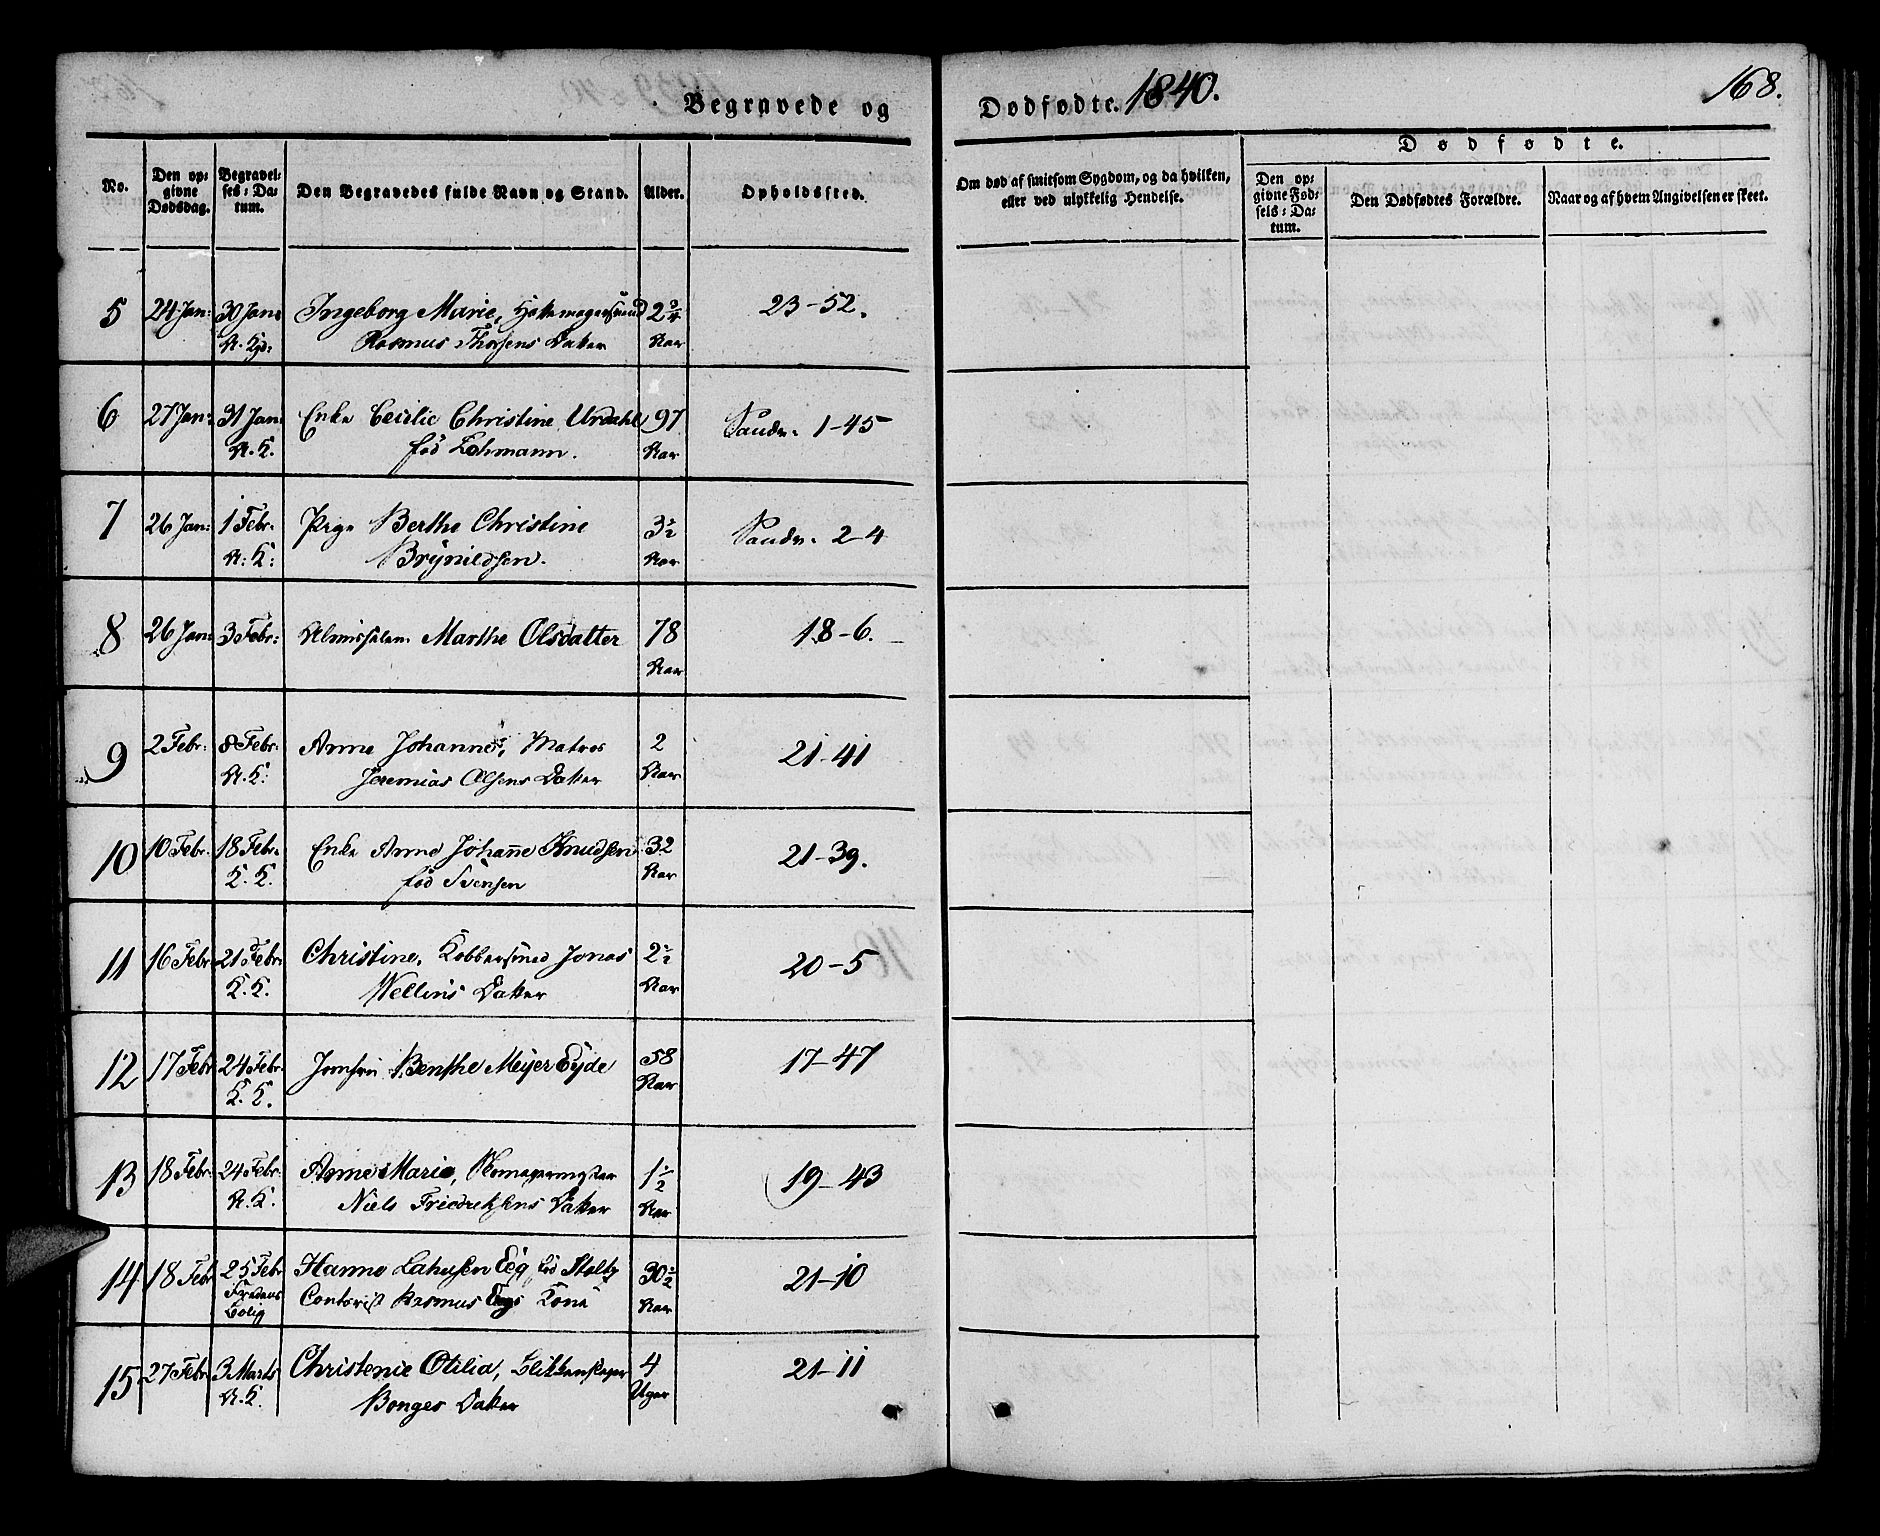 Begravede og Dødfødte. 1840. 168.
No. Den opgivne Dødsdag. Begravelses-Datum. Den Begravedes fulde Navn og Stand. Alder. Opholdssted. Om død af smitsom Sygdom, og da hvilken, eller ved ulykkelig Hendelse. Dødfødte. Den opgivne Fødsels-Datum. Den Dødfødtes Forældre. Naar og af hvem Angivelsen er skeet.
5 24 Jan: 30 Jan: Ingeborg Marie, Hattemagersvend 2 3/4 23-52.
Rasmus Thorsens Datter Aar
6 27 Jan: 31 Jan: Enke Cecilie Christine Urdahl 97 Sandv. 1-45
A. K. fød Lehmann. Aar
7 26 Jan: 1 Febr: Pige Berthe Christine 3 1/2 Sandv. 2-4
A: K: Brynildsen. Aar
8 26 Jan: 3 Febr: Almisselem Marthe Olsdatter 78 18-6.
Aar
9 2 Febr: 8 Febr: Anne Johanne, Matros 2 21-41
A. K. Jeremias Olsens Datter Aar
10 10 Febr: 18 Febr: Enke Anne Johanne Knudsen 32 21-39.
K. K. fød Svensen Aar
11 16 Febr 21 Febr: Christine, Kobbersmed Jonas 2 1/2 20-5
K. K. Wellins Datter Aar
12 17 Febr 24 Febr: Jomfru Benthe Meyer Eyde 58 17-47
K. K. Aar
13 18 Febr: 24 Febr: Anne Marie, 1 1/2 19-43
A. K. Niels Friedriksens Datter Aar
14 18 Febr 25 Febr Hanne Lahusen Eeg fød Stoltz 30 1/2 21-10
Fredens Bolig Contorist Rasmus Eegs Kone Aar
15 27 Febr 3 Marts Christenie Otilia, Blikkenslager 4 21-11
A. K. Bonges Datter Uger